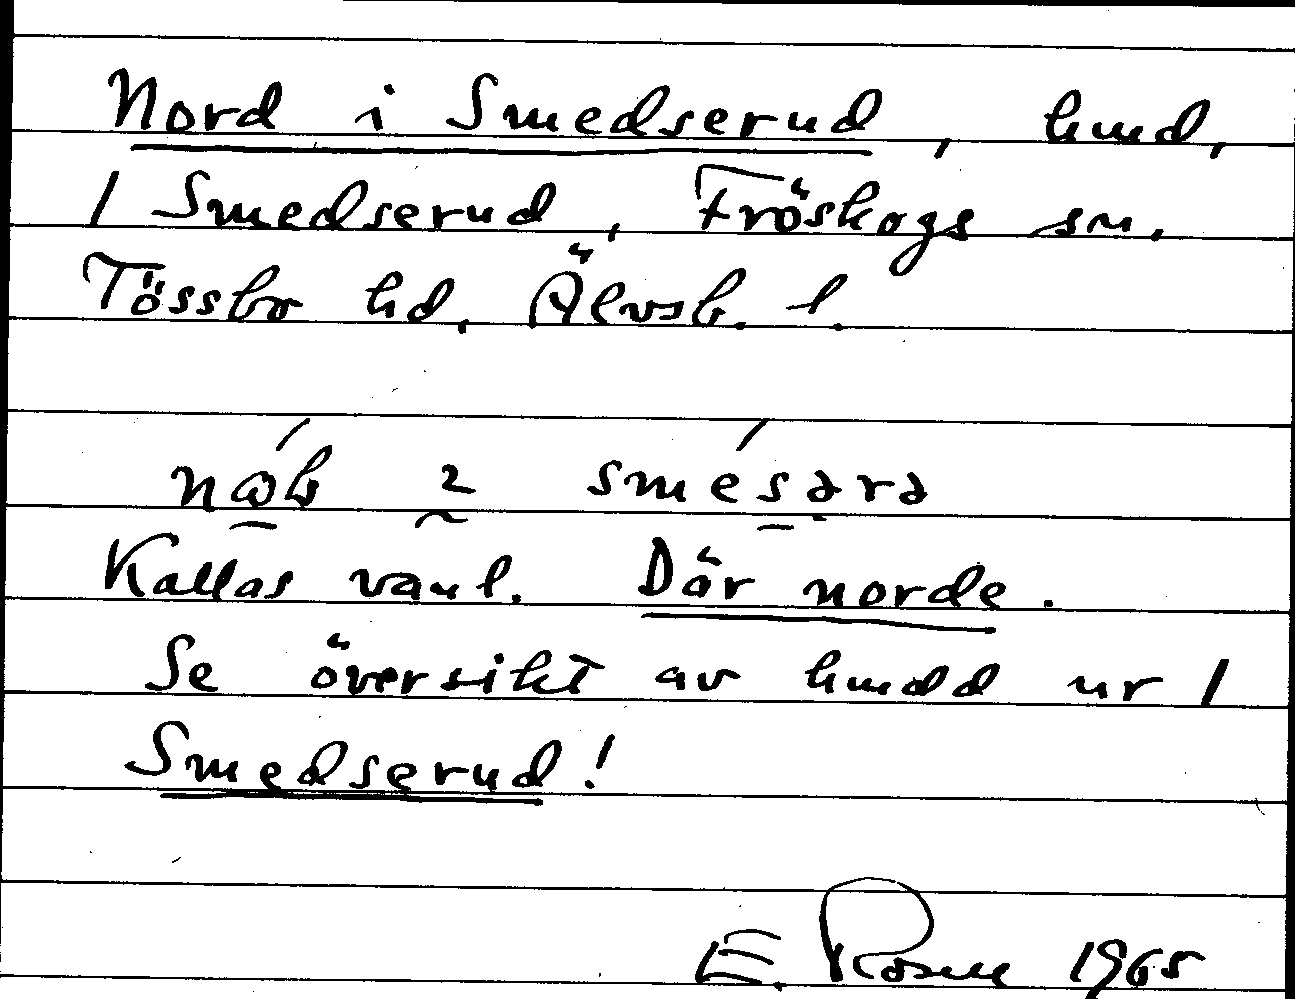 Nord i Smedserud, hmd,
1 Smedserud, Fröskogs sn.
Tössbo hd. Älvsb. l.
Kallas vanl. Där norde.
Se översikt av hmdd ur 1
Smedserud!
E. Rosell 1965